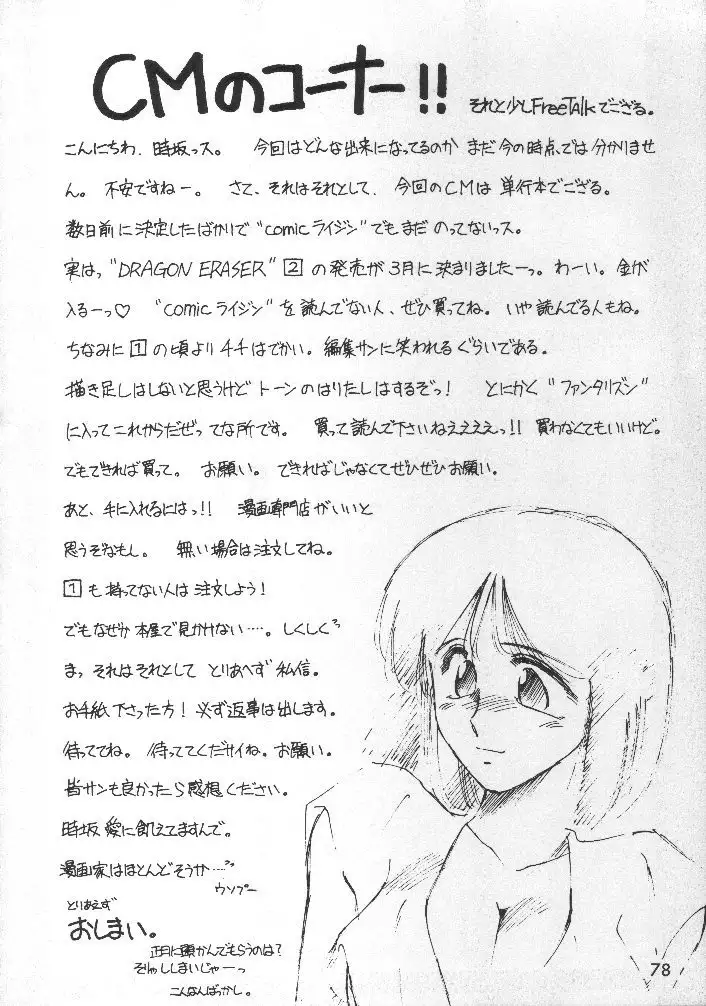 CMのコーナー!!
それと少しFreeTalkでござる。
こんにちわ、時坂っス。 今回はどんな出来になってるのか まだ今の時点では分かりませ
ん。 不安ですねー。 さて、それはそれとして、今回のCMは 単行本でござる。
数日前に決定したばかりで"comicライジン"でもまだ のってないっス。
実はっ"DRAGON ERASER"2の発売が3月に決まりましたーっ。わーい。金が
入るーっ♡ "comicライジン"を読んでない人、ぜひ買ってね。いや読んでる人もね。
ちなみに1の頃よりチチはでかい。編集サンに笑われるぐらいである。
描き足しはしないと思うけど トーンのはりたしはするぞっ! とにかく"ファンタリズン"
に入ってこれからだぜってな所です。 買って読んで下さいねええええっ!! 買わなくてもいいけど。
でもできれば買って。 お願い。 できればじゃなくてぜひぜひお願い。
あと、手に入れるにはっ!! 漫画専門店がいいと
思うぞなもし。 無い場合は注文してね。
1も持ってない人は注文しよう!
でもなぜか本屋で見かけない‥‥。しくしく
まっ それはそれとして とりあへず私信。
お手紙下さった方! 必ず返事は出します。
待っててね。 待っててくだサイね。お願い。
皆サンも良かったら感想ください。
時坂 愛に飢えてますんで。
漫画家はほとんどそうか‥‥
ウソプー
とりあえず
おしまい。
正月に頭かんでもらうのは?
そりゃししまいじゃーっ
こんなんばっかし。
78